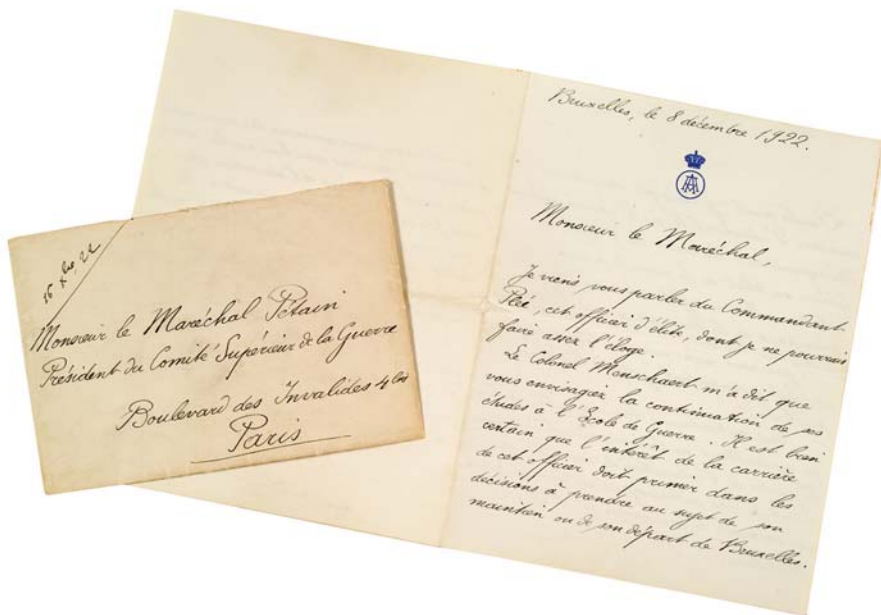 16 Xbre 22
Monsieur le Maréchal Pétain
Président du Comité Supérieur de la Guerre
Boulevard des Invalides 4 bis
Paris
Bruxelles, le 8 décembre 1922.
Monsieur le Maréchal,
Je viens vous parler du Commandant
cet officier d'élite, dont je ne pourrais
faire assez l'éloge.
Le Colonel Menschaert m'a dit que
vous envisagiez la continuation de ses
études à l'Ecole de Guerre. Il est bien
certain que l'intérêt de la carrière
de cet officier doit primer dans les
décisions à prendre au sujet de son
maintien ou de son départ de Bruxelles.